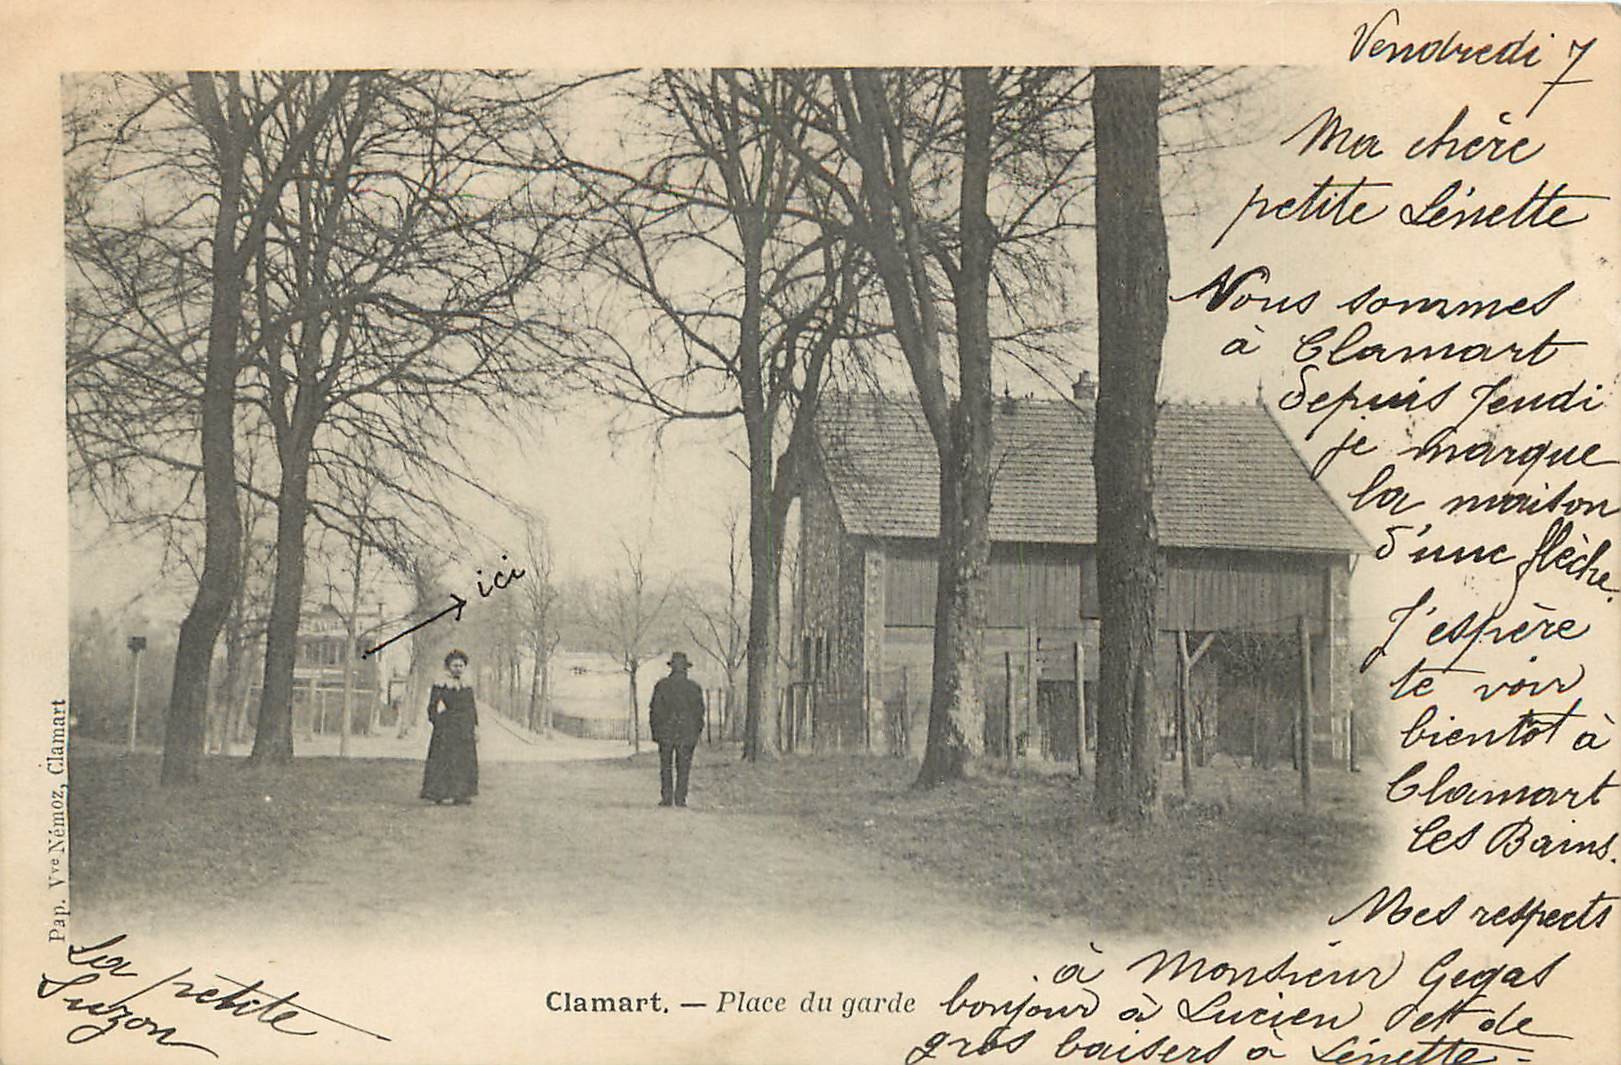 Vendredi 7
Ma chère
petite Lénette
Nous sommes
à Clamart
depuis Jeudi
je marque
la maison
d'une flèche.
J'espère
te voir
bientôt à
Clamart
les Bains.
Mes respects
à Monsieur Gegas
bonjour à Lucien et de
gros baisers à Lénette -
La petite
Suzon
ici
Clamart. — Place du garde
Pap. Vve Némoz, Clamart